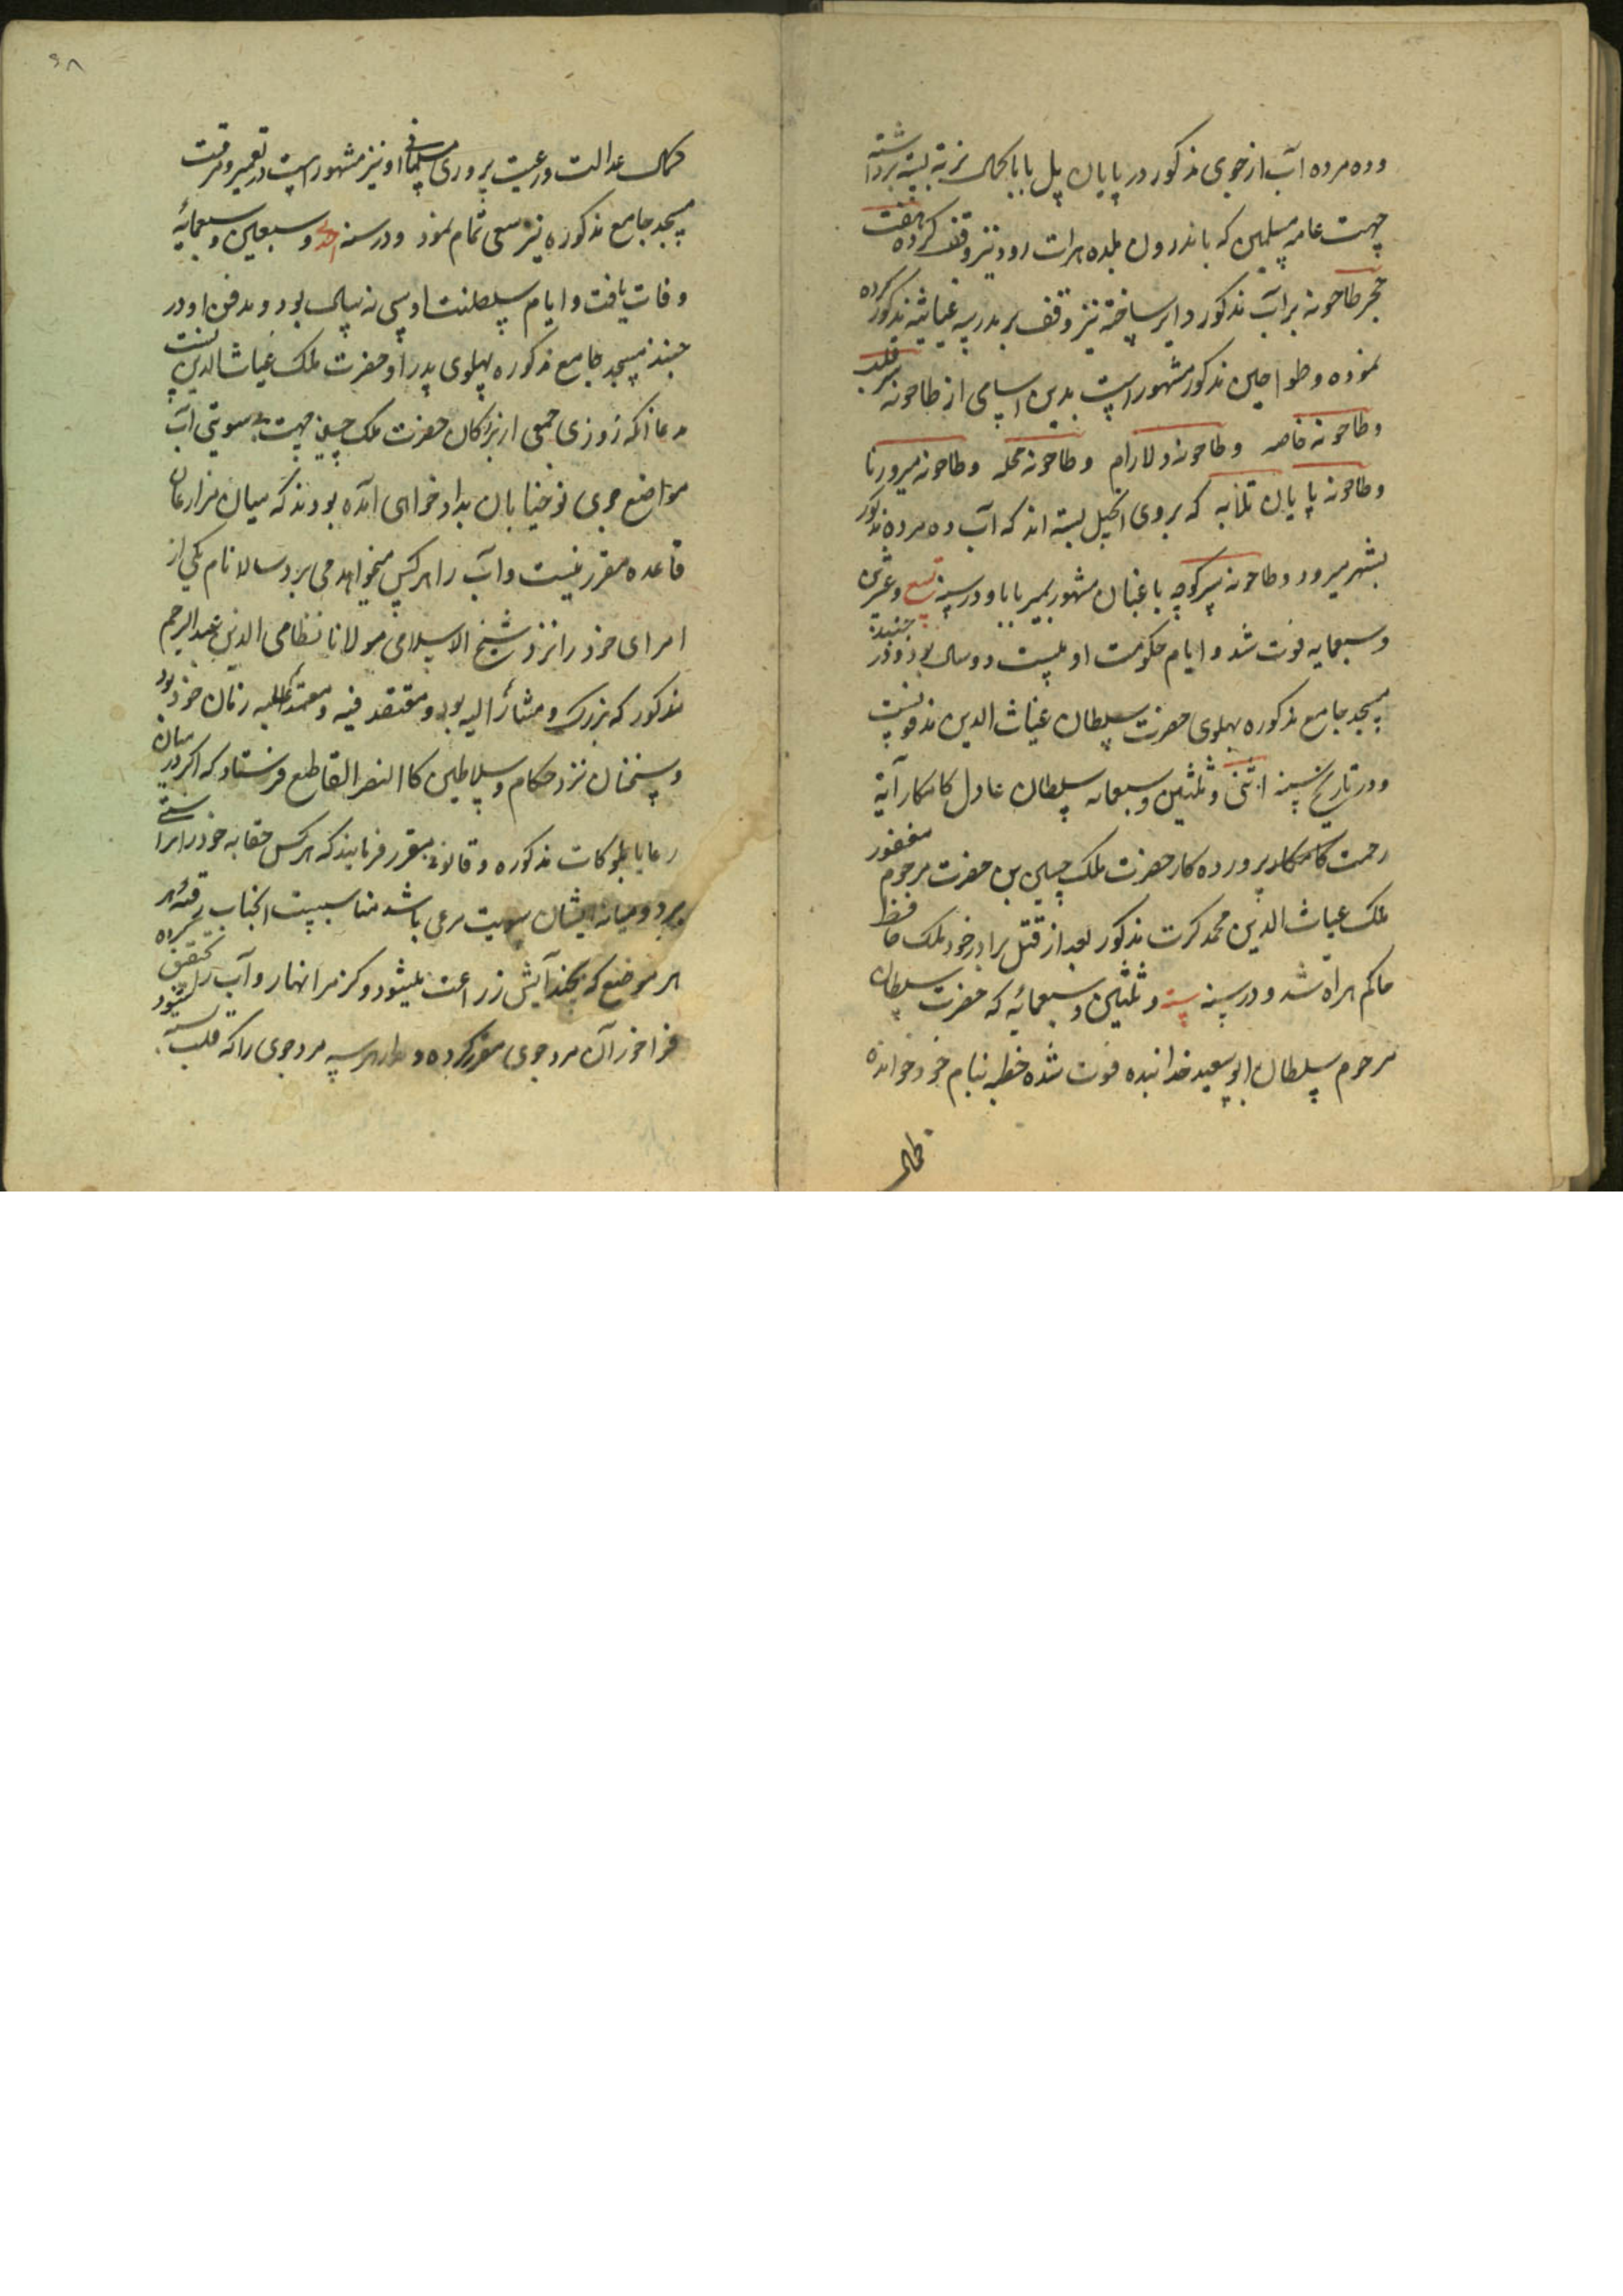 وده مرده آب از جوی مذکور در پایان پل بابا کمال نزیه بسته برداشته
جهت عامه مسلمین که باندرون بلده هرات رود نیز وقف کرده هفت
حجر طاحونه بر آب مذکور دایر ساخته نیز وقف بر مدرسه غیاثیه مذکور کرده
نموده و طواحین مذکور مشهور است بدین اسامی از طاحونه سرقلب
و طاحونه خاصه و طاحونه دلارام و طاحونه محله و طاحونه میرورنا
و طاحونه پایان تلخابه که بروی انجیل بسته اند که آب ده مرده مذکور
بشهر میرود و طاحونه سرکوچه باغبان مشهور بمیر بابا و در سنه تسع و عشرین
و سبعمایه فوت شد و ایام حکومت او بیست دو سال بود و در جنبذ
مسجد جامع مذکوره پهلوی حضرت سلطان غیاث الدین مدفونست
و در تاریخ سنه اثنی و ثلثین و سبعمایه سلطان عادل کامکار آیة
رحمت کامکار پرورده کار حضرت ملک حسین بن حضرت مرحوم مغفور
ملک غیاث الدین محمد کرت مذکور بعد از قتل برادر خود ملک حافظ
حاکم هراة شد و در سنه ستة و ثلثین و سبعمائه که حضرت سلطان
مرحوم سلطان ابو سعید خدابنده فوت شده خطبه بنام خود خوانده
کمال
۶۸
کمال عدالت و رعیت پروری مسلمانی او نیز مشهور است در تعمیر و مرمت
مسجد جامع مذکوره نیز سعی تمام نمود و در سنه احدی و سبعین و سبعمائه
وفات یافت و ایام سلطنت او سی نه سال بود و مدفن او در
جنبذ مسجد جامع مذکوره پهلوی پدر او حضرت ملک غیاث الدین است
مدعا آنکه روزی جمعی از بزرکان حضرت ملک حسین جهت بی سویتی آب
مواضع جوی نو خیابان بداد خواهی آمده بودند که میان مزارعان
قاعده مقرر نیست و آب را هر کس میخواهد می برد سالا نام یکی از
امرای خود را نزد شیخ الاسلامی مولانا نظامی الدین عبد الرحیم
مذکور که بزرک و مشار الیه بود و معتقد فیه و معتمد علیه زمان خود بود
و سخنان نزد حکام و سلاطین کا النص القاطع فرستاد که اکر در میان
رعایا بلوکات مذکوره و قانونی مقرر فرمایند که هر کس حقابه خود را براستی
برد و میانه ایشان سویت مرعی باشد مناسبست انجناب رقبه هر
هر موضع که بچند آبش زراعت میشود و کز مر انهار و آب را تحقیق کرده
فراخور آن مرد جوی مقرر کرده و هر سه مرد جوی را که قلب بسته شود